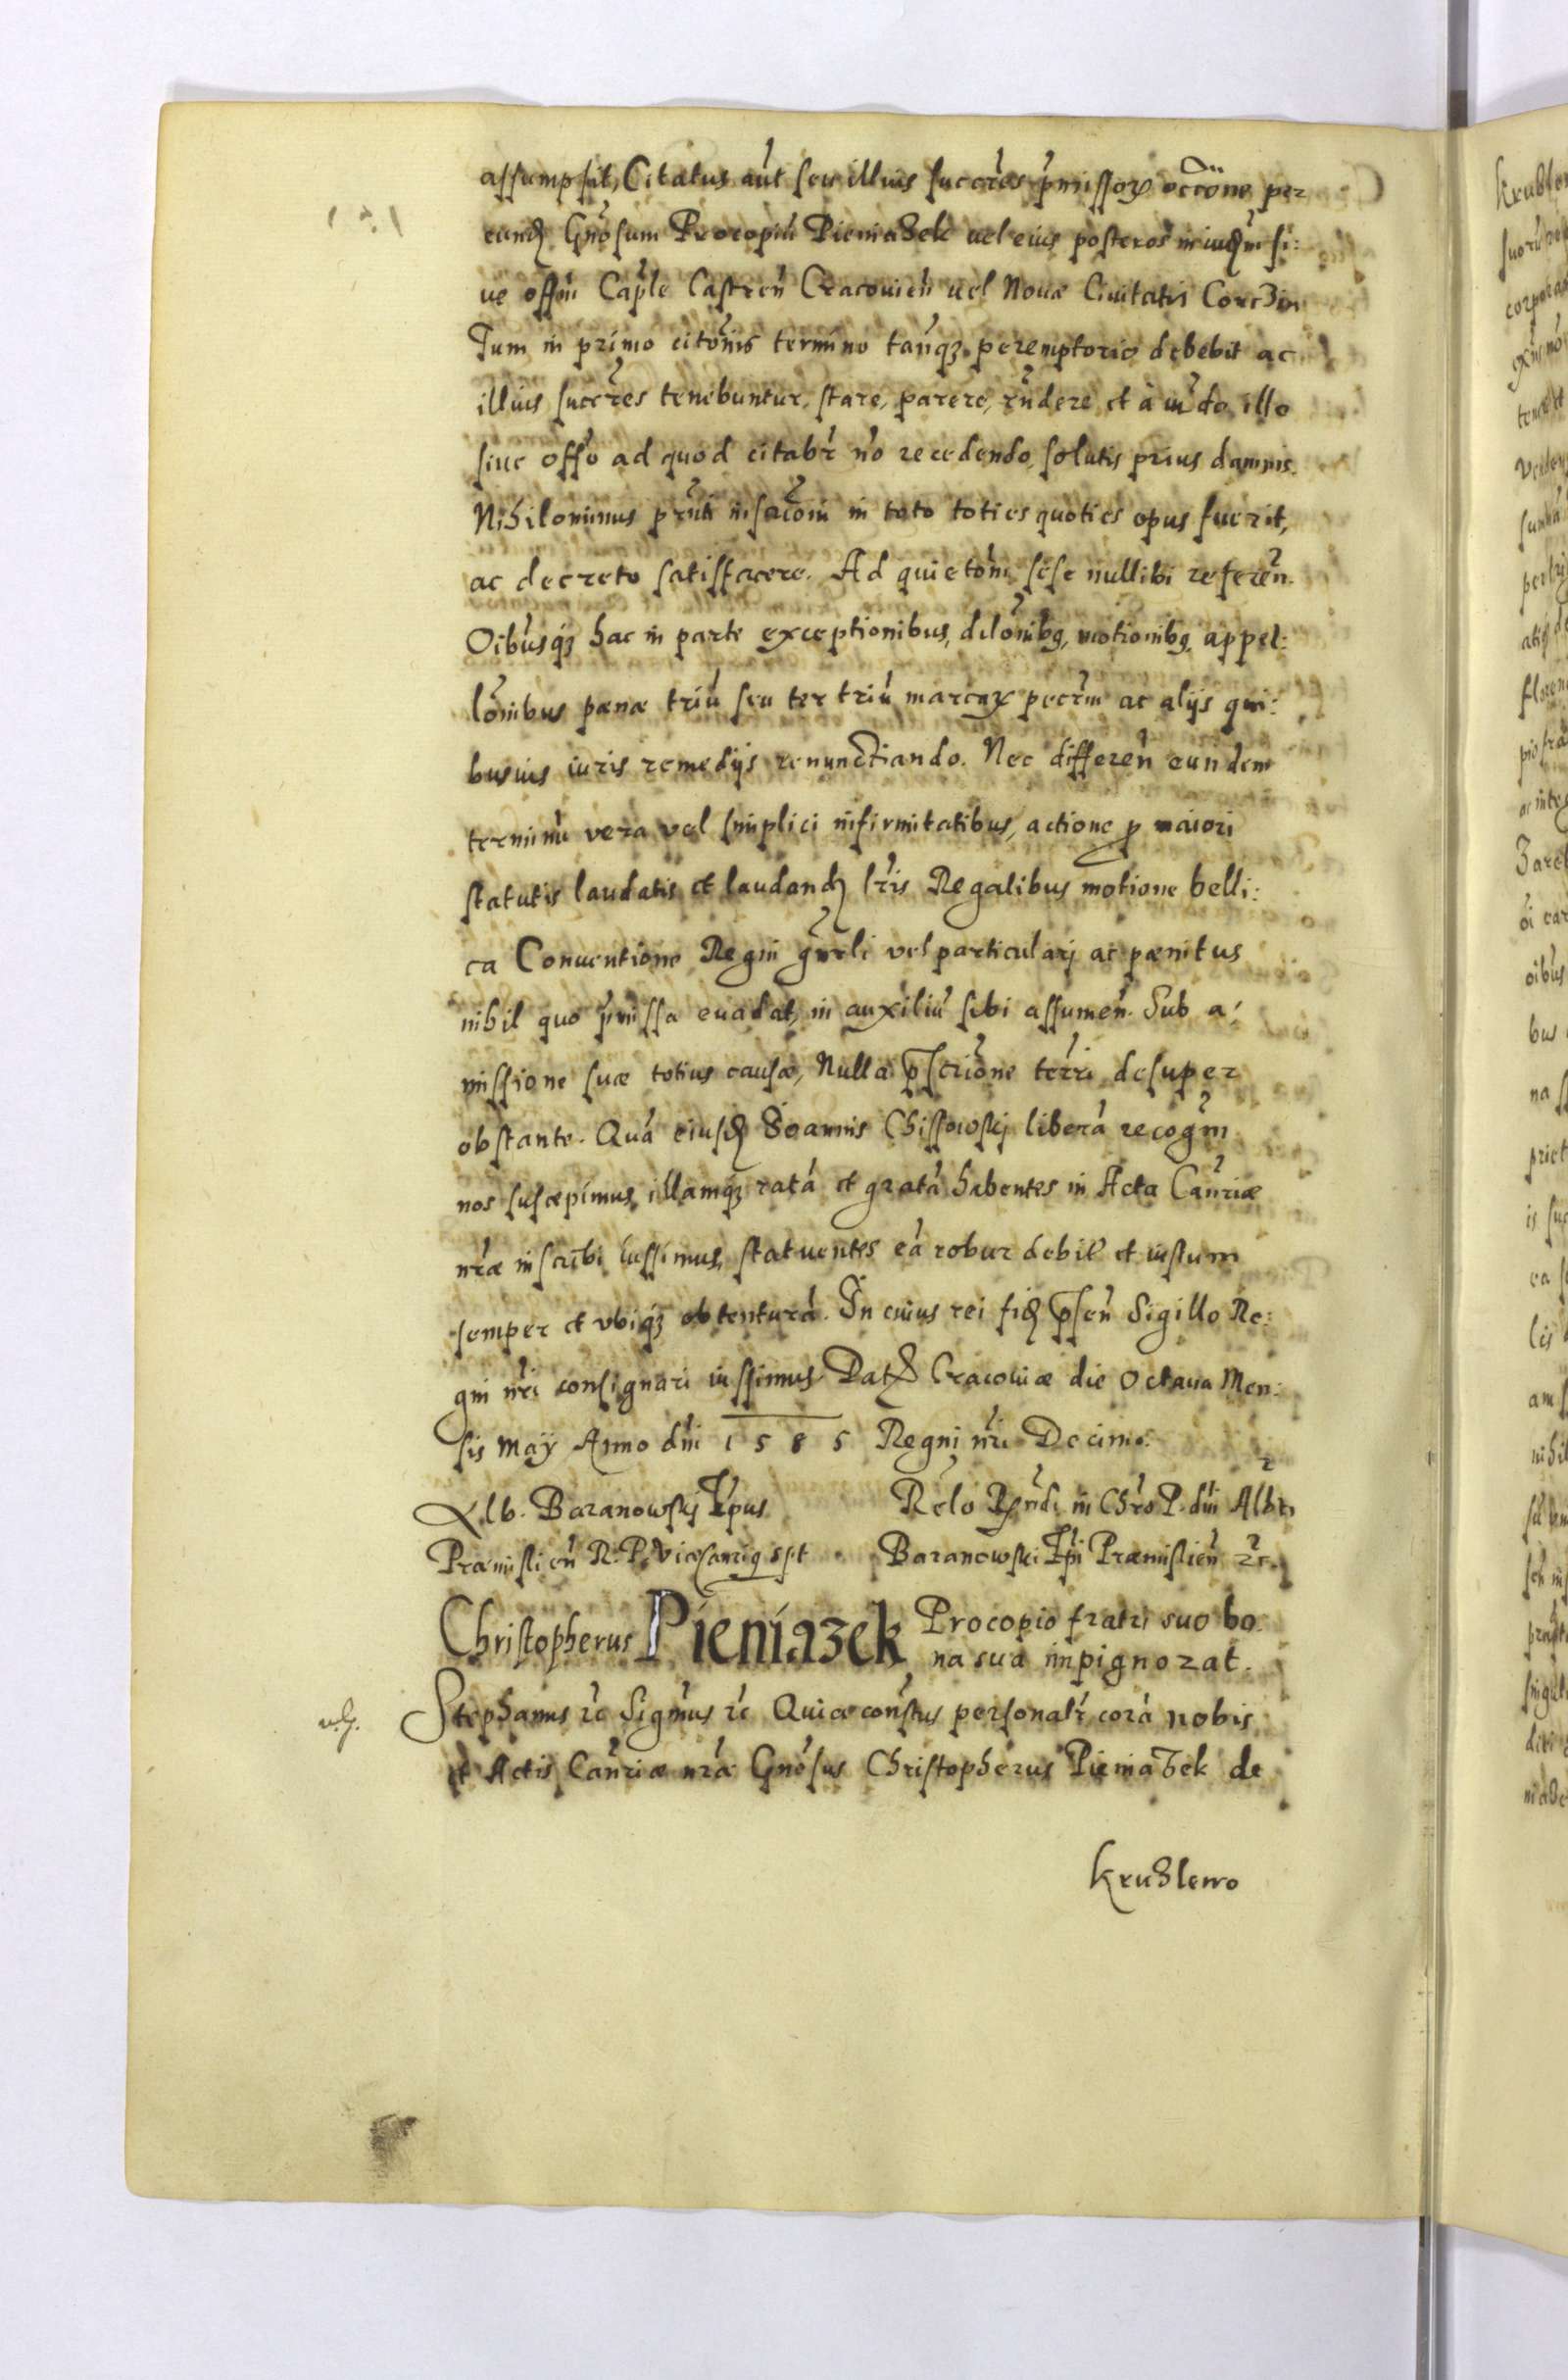 assumpsit, Citatus aūt seu illius succr̃es p̃missoꝝ occ͠one per
eund̃ Gñosum Procopiū Pieniaʒek uel eius posteros in iud̃m si:
ue offm̃ Cap̃le Castreñ Cracovieñ uel Novæ Civitatis Corcʒin
Tum in primo citõnis termino tanq̃ʒ peremptorio debebit ac
illius succr̃es tenebuntur, stare, parere, rñdere et à iud̃o illo
sive offõ ad quod citabr̃ nõ recedendo, solutis prius damnis.
Nihilominus pr̃nti inscrõni in toto toties quoties opus fuerit,
ac decreto satisfacere. Ad quietõni sese nullibi refereñ.
Oĩbusqʒ hac in parte exceptionibus, dilõnibg, motionibg, appel:
lõnibus pænæ triũ seu ter triũ marcaꝝ pecr̃m ac alijs qui:
busuis iuris remedijs renunctiando. Nec differeñ eundem
terminũ vera vel simplici infirmitatibus, actione ꝓ maiori
statutis laudatis et laudand̃ lr̃is Regalibus motione belli:
ca Conventione Regni gñrli vel particularj ac pænitus
nihil quo p̃missa evadat, in auxiliũ sibi assumeñ. Sub a:
missione suæ totius causæ, Nulla p̃scriõne terri desuper
obstante. Quã eiusd̃ Joannis Chissowskj liberã recogñm
nos suscepimus, illamqʒ ratã et gratã habentes in Acta Cañriæ
nr̃æ inscribi iussimus, statuentes eã robur debitũ et iustum
semper et ubiqʒ obtenturã. In cuius rei fid̃ p̃señ Sigillo Re:
gni nr̃i consignari iussimus. Dat̃ Cracoviæ die Octava Men:
sis Maÿ Anno dñi 1585 Regni nr̃i Decimo.
Alb. Baranowskj Ep̃us
Præmislieñ R. P. Vicecanrig̃ sst
Relo R̃ndi in Chr̃o P. dñi Albr̃i
Baranowski Ep̃i Præmislieñ ⁊c.
Christopherus Pieniaʒek Procopio fratri suo bo:
na sua impignorat.
Stephanus ⁊c Sigm̃us ⁊c Quia cons̃tus personalr̃ corã nobis
et Actis Cañriæ nr̃æ Gñosus Christopherus Pieniaʒek de
Kruʒlewo